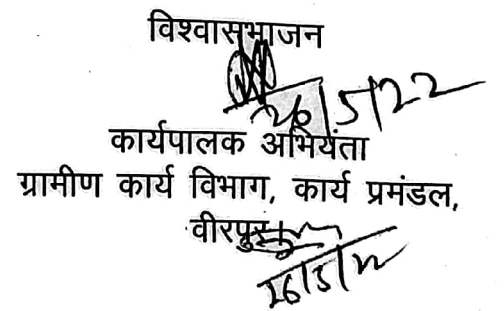 विश्वासभाजन
26/5/22
कार्यपालक अभियंता
ग्रामीण कार्य विभाग, कार्य प्रमंडल,
वीरपुर
26/5/22